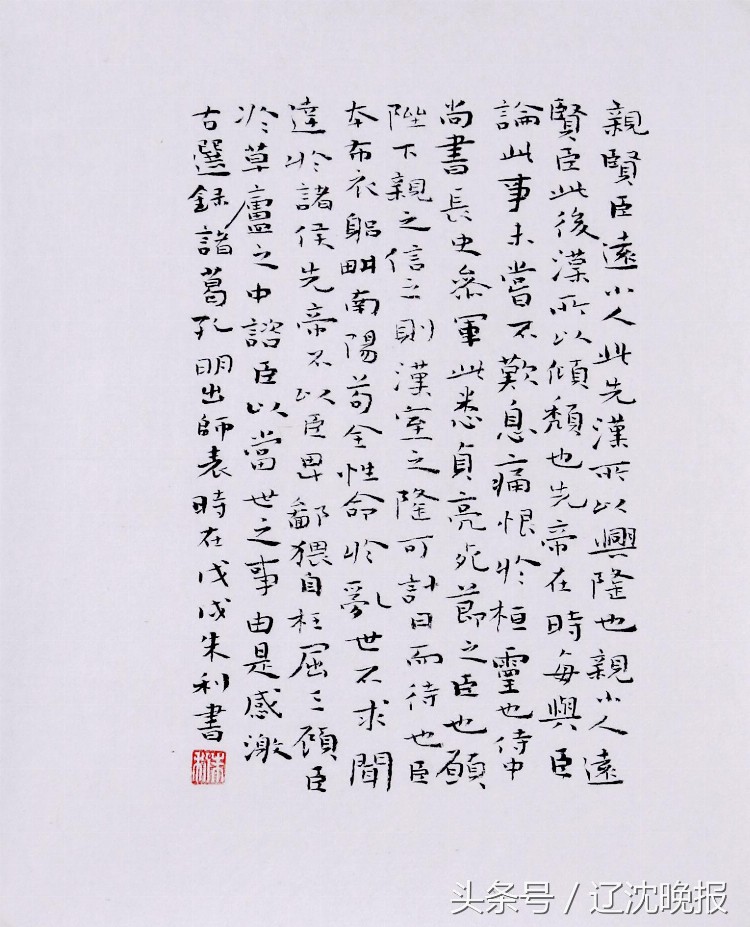 親賢臣遠小人此先漢所以興隆也親小人遠
賢臣此後漢所以傾頹也先帝在時每與臣
論此事未嘗不歎息痛恨於桓靈也侍中
尚書長史參軍此悉貞亮死節之臣也願
陛下親之信之則漢室之隆可計日而待也臣
本布衣躬畊南陽苟全性命於亂世不求聞
達於諸侯先帝不以臣卑鄙猥自枉屈三顧臣
於草廬之中諮臣以當世之事由是感激
古選録諸葛孔明出師表時在戊戌朱利書
朱利
头条号 / 辽沈晚报